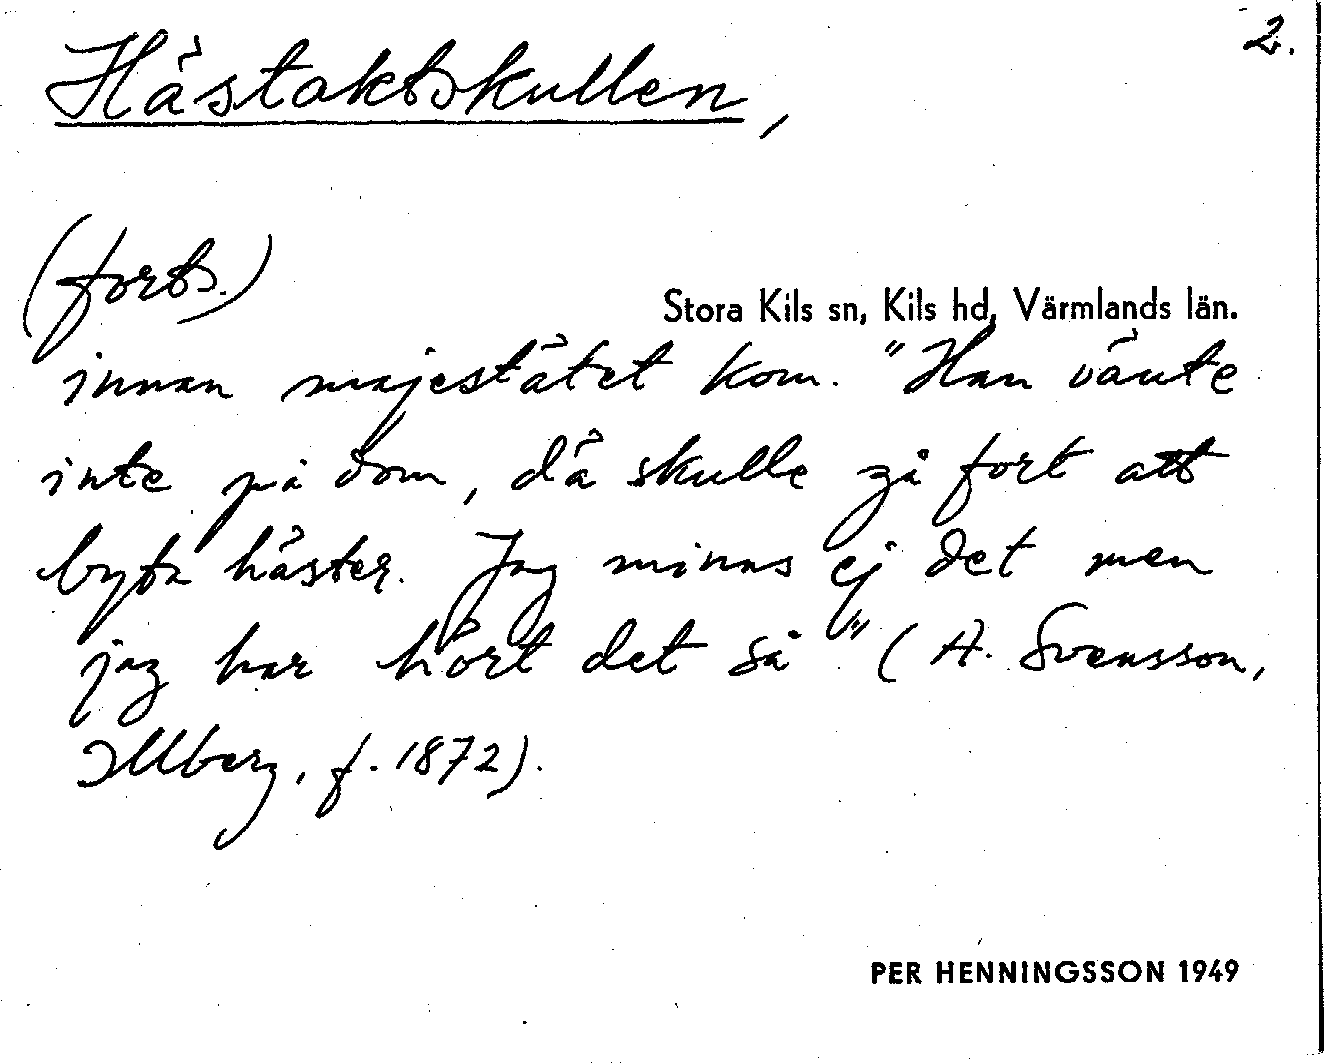 2.
Hästaktskullen,
(forts.)
Stora Kils sn, Kils hd, Värmlands län.
innan majestätet kom. "Han vänte
inte på dom, dä skulle gå fort att
byta häster. Jag minns ej det men
jag har hört det så" (A. Svensson,
Illberg, f. 1872).
PER HENNINGSSON 1949